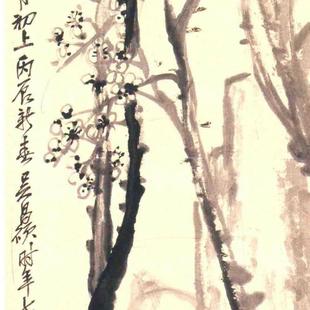 初上丙辰新春吴昌硕时年七